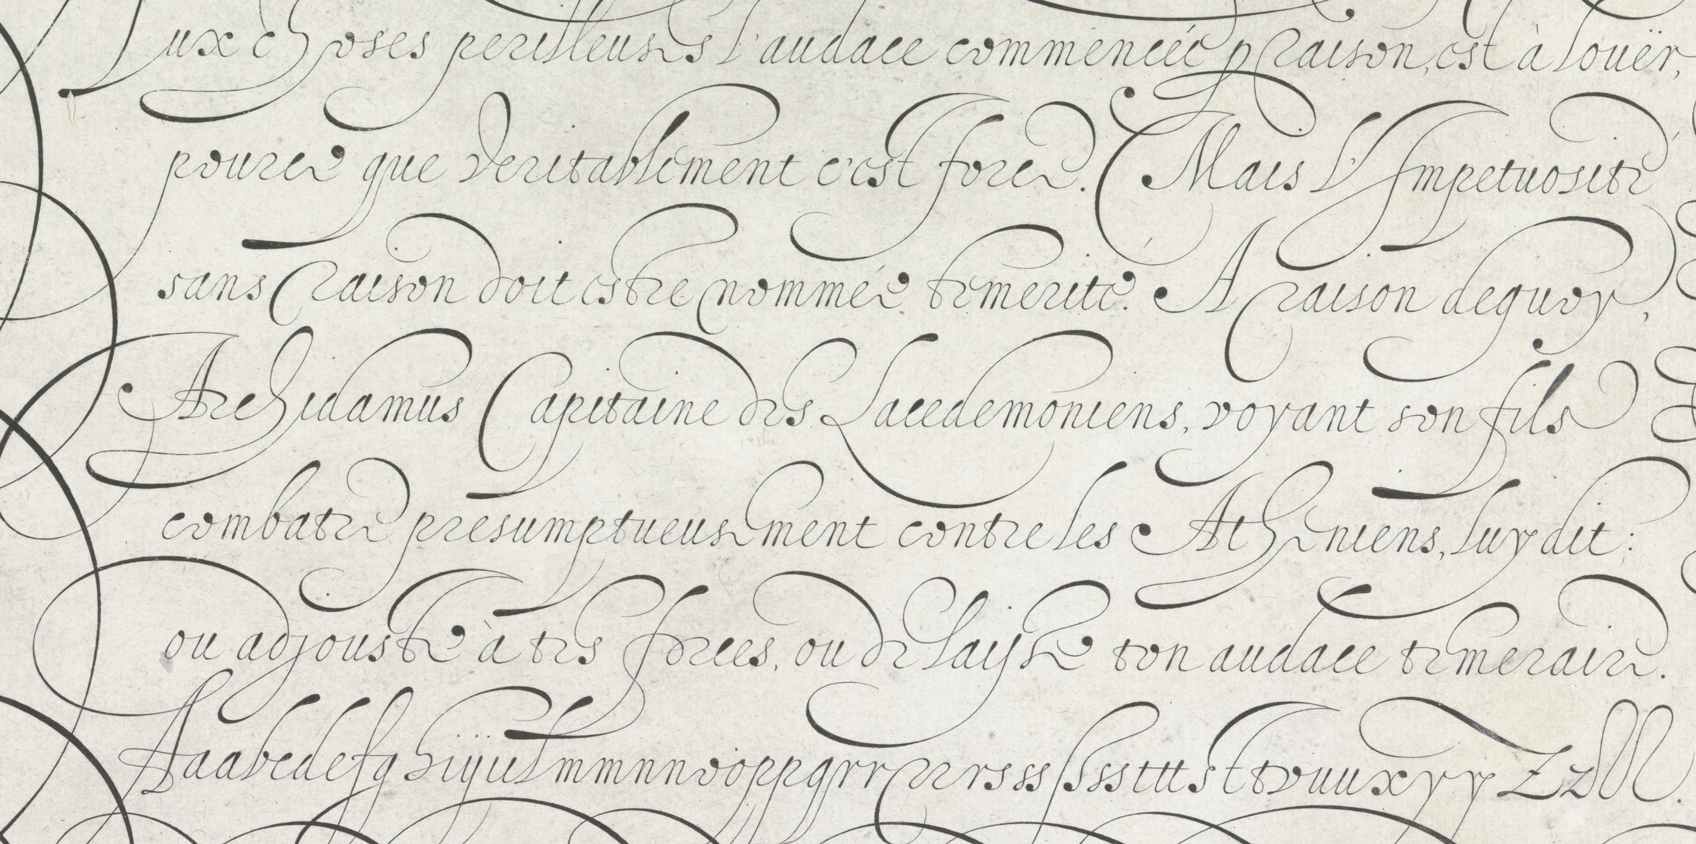 ux choses perilleuses l'audace commencée p raison, est à louër,
pource que veritablement c'est force. Mais l'Impetuosité
sans raison doit estre nommée temerité. A raison dequoy,
Archidamus Capitaine des Lacedemoniens, voyant son fils
combatre presumptueusement contre les Atheniens, luy dit:
ou adjouste à tes forces, ou delaisse ton audace temeraire.